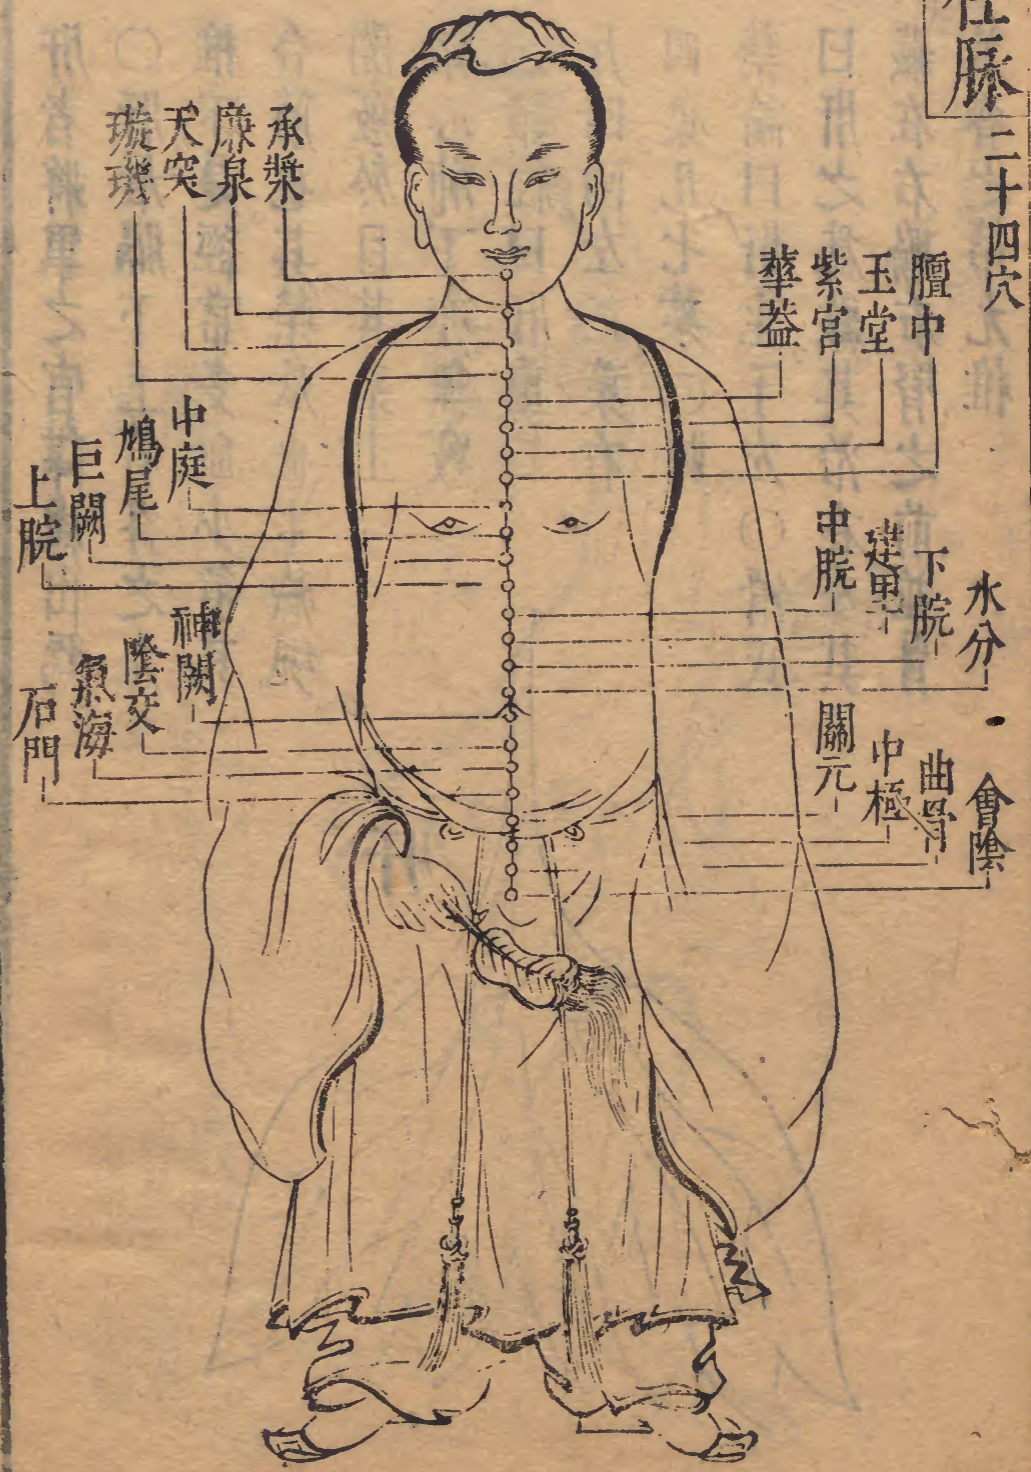 任脉
二十四穴
承漿
廉泉
天突
璇璣
膻中
玉堂
紫宫
華蓋
中庭
鳩尾
巨闕
上脘
中脘
建里
下脘
水分
神闕
陰交
氣海
石門
關元
中極
曲骨
會陰